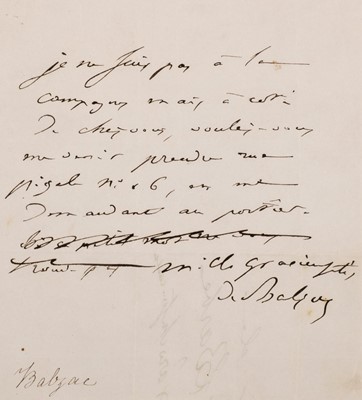 je ne suis pas à la
campagne mais, à coté
de chez vous, voulez-vous
me venir prendre rue
pigale n° 16, en me
demandant au portier
mille gracieusetés
de Balzac
Balzac